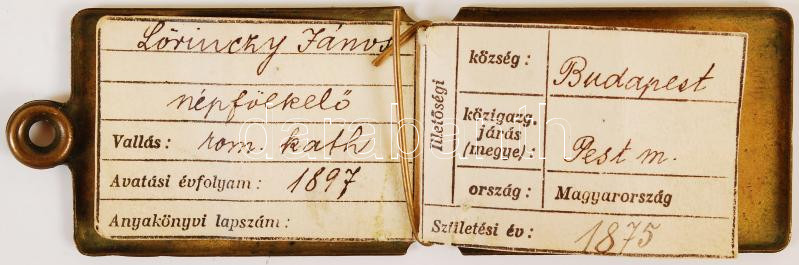 Lőrinczy János
népfölkelő
Vallás: rom. kath
Avatási évfolyam: 1897
Anyakönyvi lapszám:
Illetőségi
község: Budapest
közigazg.
járás
(megye): Pest m.
ország: Magyarország
Születési év: 1875
darabanth